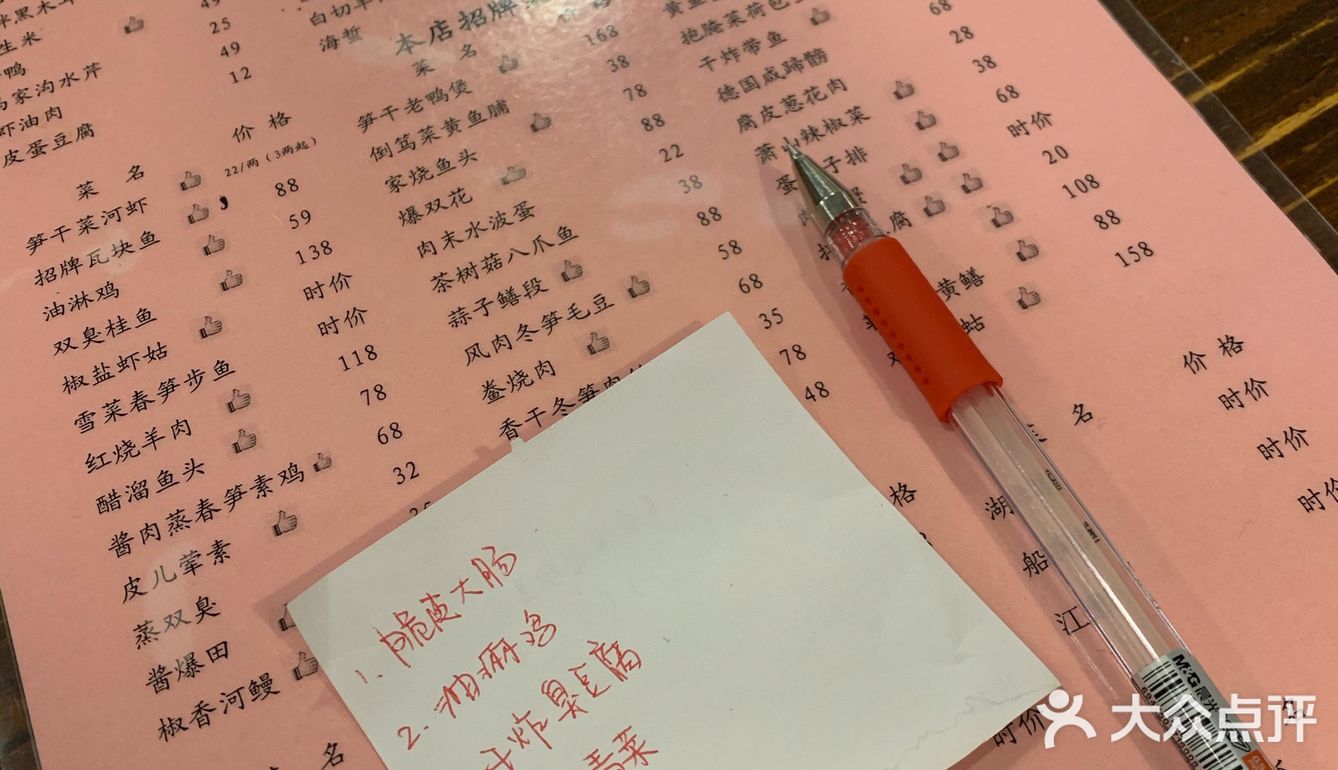 生米
25
49
12
海蜇
本店招牌
菜 名
虾油肉
皮蛋豆腐
菜 名
价 格
笋干菜河虾
22/两(3两起)
招牌瓦块鱼
88
油淋鸡
59
双臭桂鱼
138
椒盐虾姑
时价
雪菜春笋步鱼
时价
红烧羊肉
118
醋溜鱼头
78
酱肉蒸春笋素鸡
68
皮儿荤素
32
蒸双臭
酱爆田
椒香河鳗
笋干老鸭煲
168
倒笃菜黄鱼脯
38
家烧鱼头
78
爆双花
88
肉末水波蛋
22
茶树菇八爪鱼
38
蒜子鳝段
88
风肉冬笋毛豆
58
鲞烧肉
68
香干冬笋肉
35
78
48
抱腌菜荷包
干炸带鱼
68
德国咸蹄髈
28
腐皮葱花肉
38
萧山辣椒菜
68
时价
20
108
黄鳝
88
158
名
价 格
时价
时价
时价
格
湖
船
江
时价
名
1. 脆皮大肠
2. 油淋鸡
干炸臭豆腐
青菜
M&G
大众点评